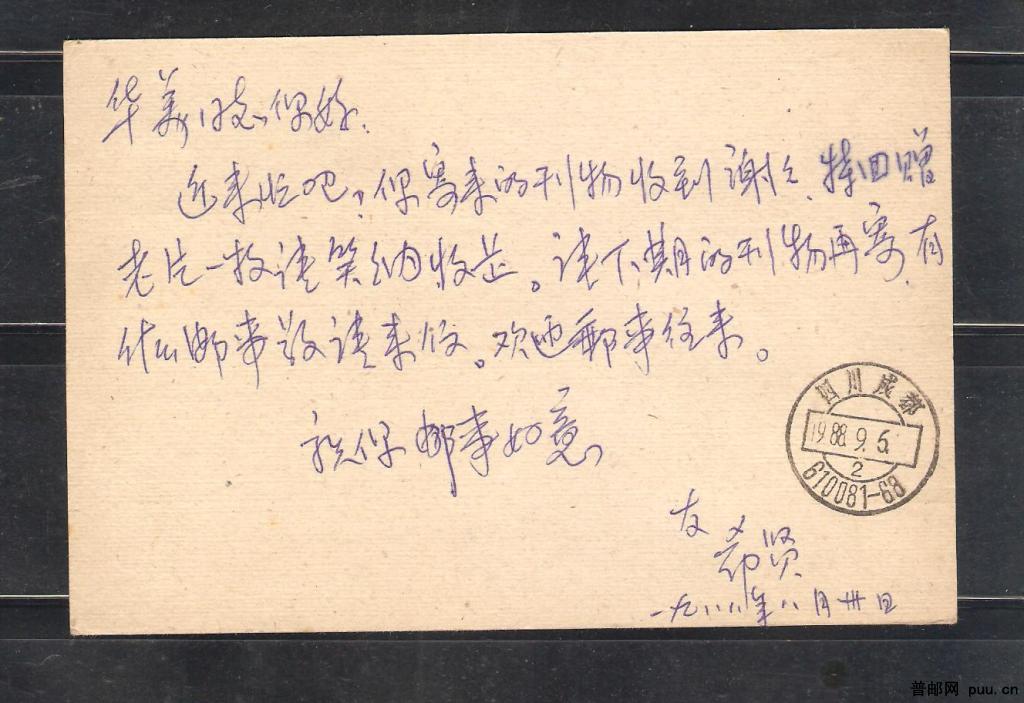 华美同志你好.
近来忙吧，你寄来的刊物收到谢谢，特回赠
老片一枚请笑纳收芷。请下期的刊物再寄，有
什么邮事敬请来仅。欢迎邮事往来。
祝你邮事如意
友
希贤
一九八八年八月卅日
四川成都
1988.9.6.
2
610081-68
普邮网 puu.cn